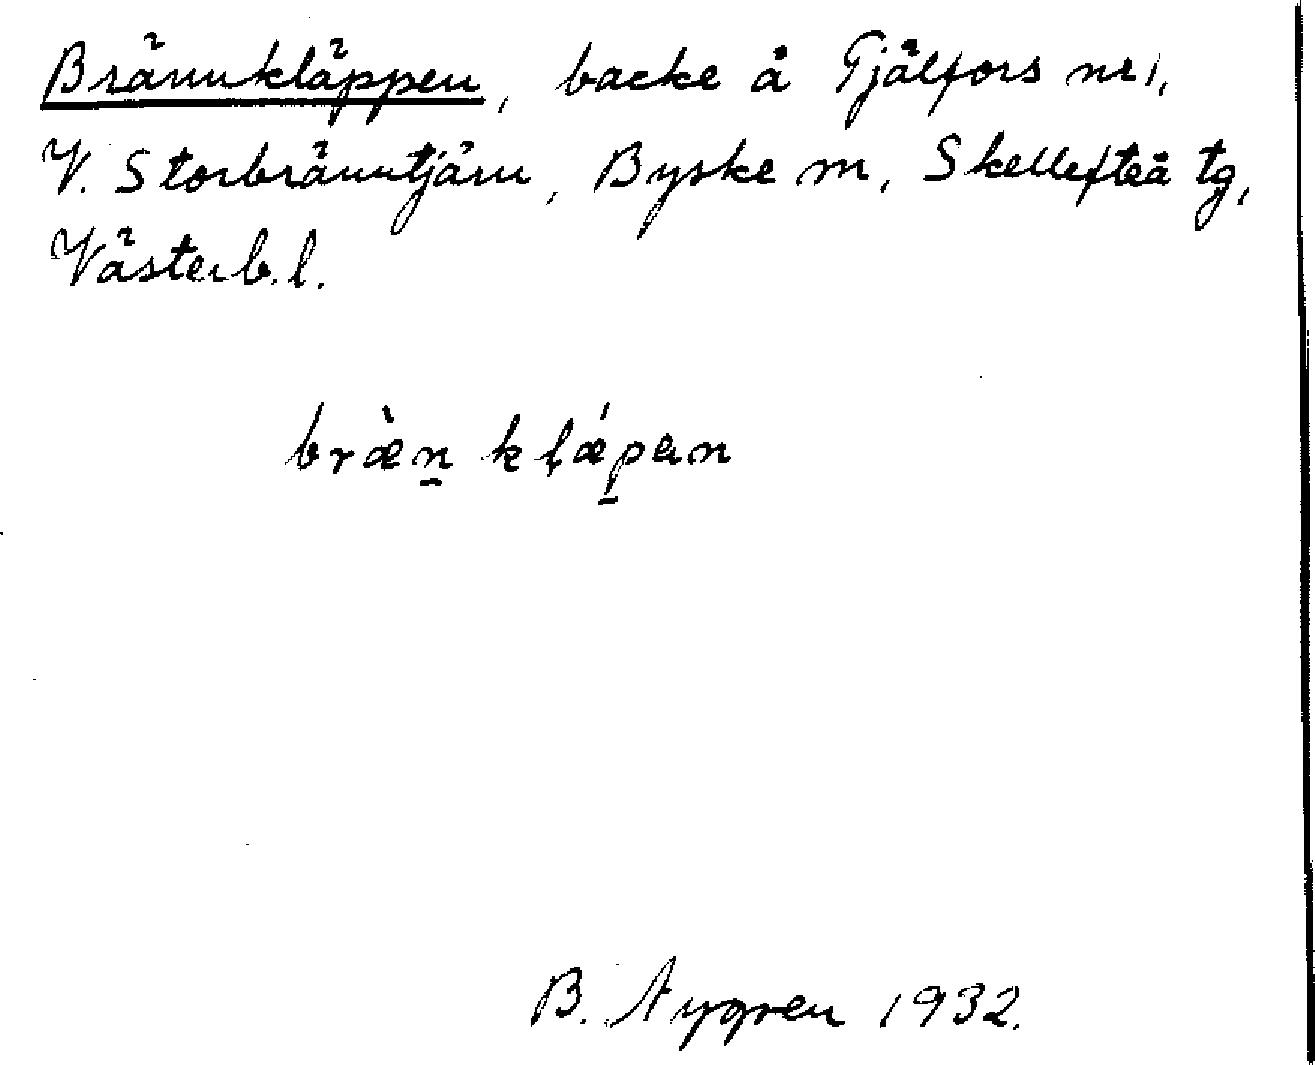 Brännkläppen, backe å Tjälfors nr 1,
V. Storbränntjärn, Byske m, Skellefteå tg,
Västerb. l.
bræ̀n̲ kḷǽp̲ən
B. Nygren 1932.